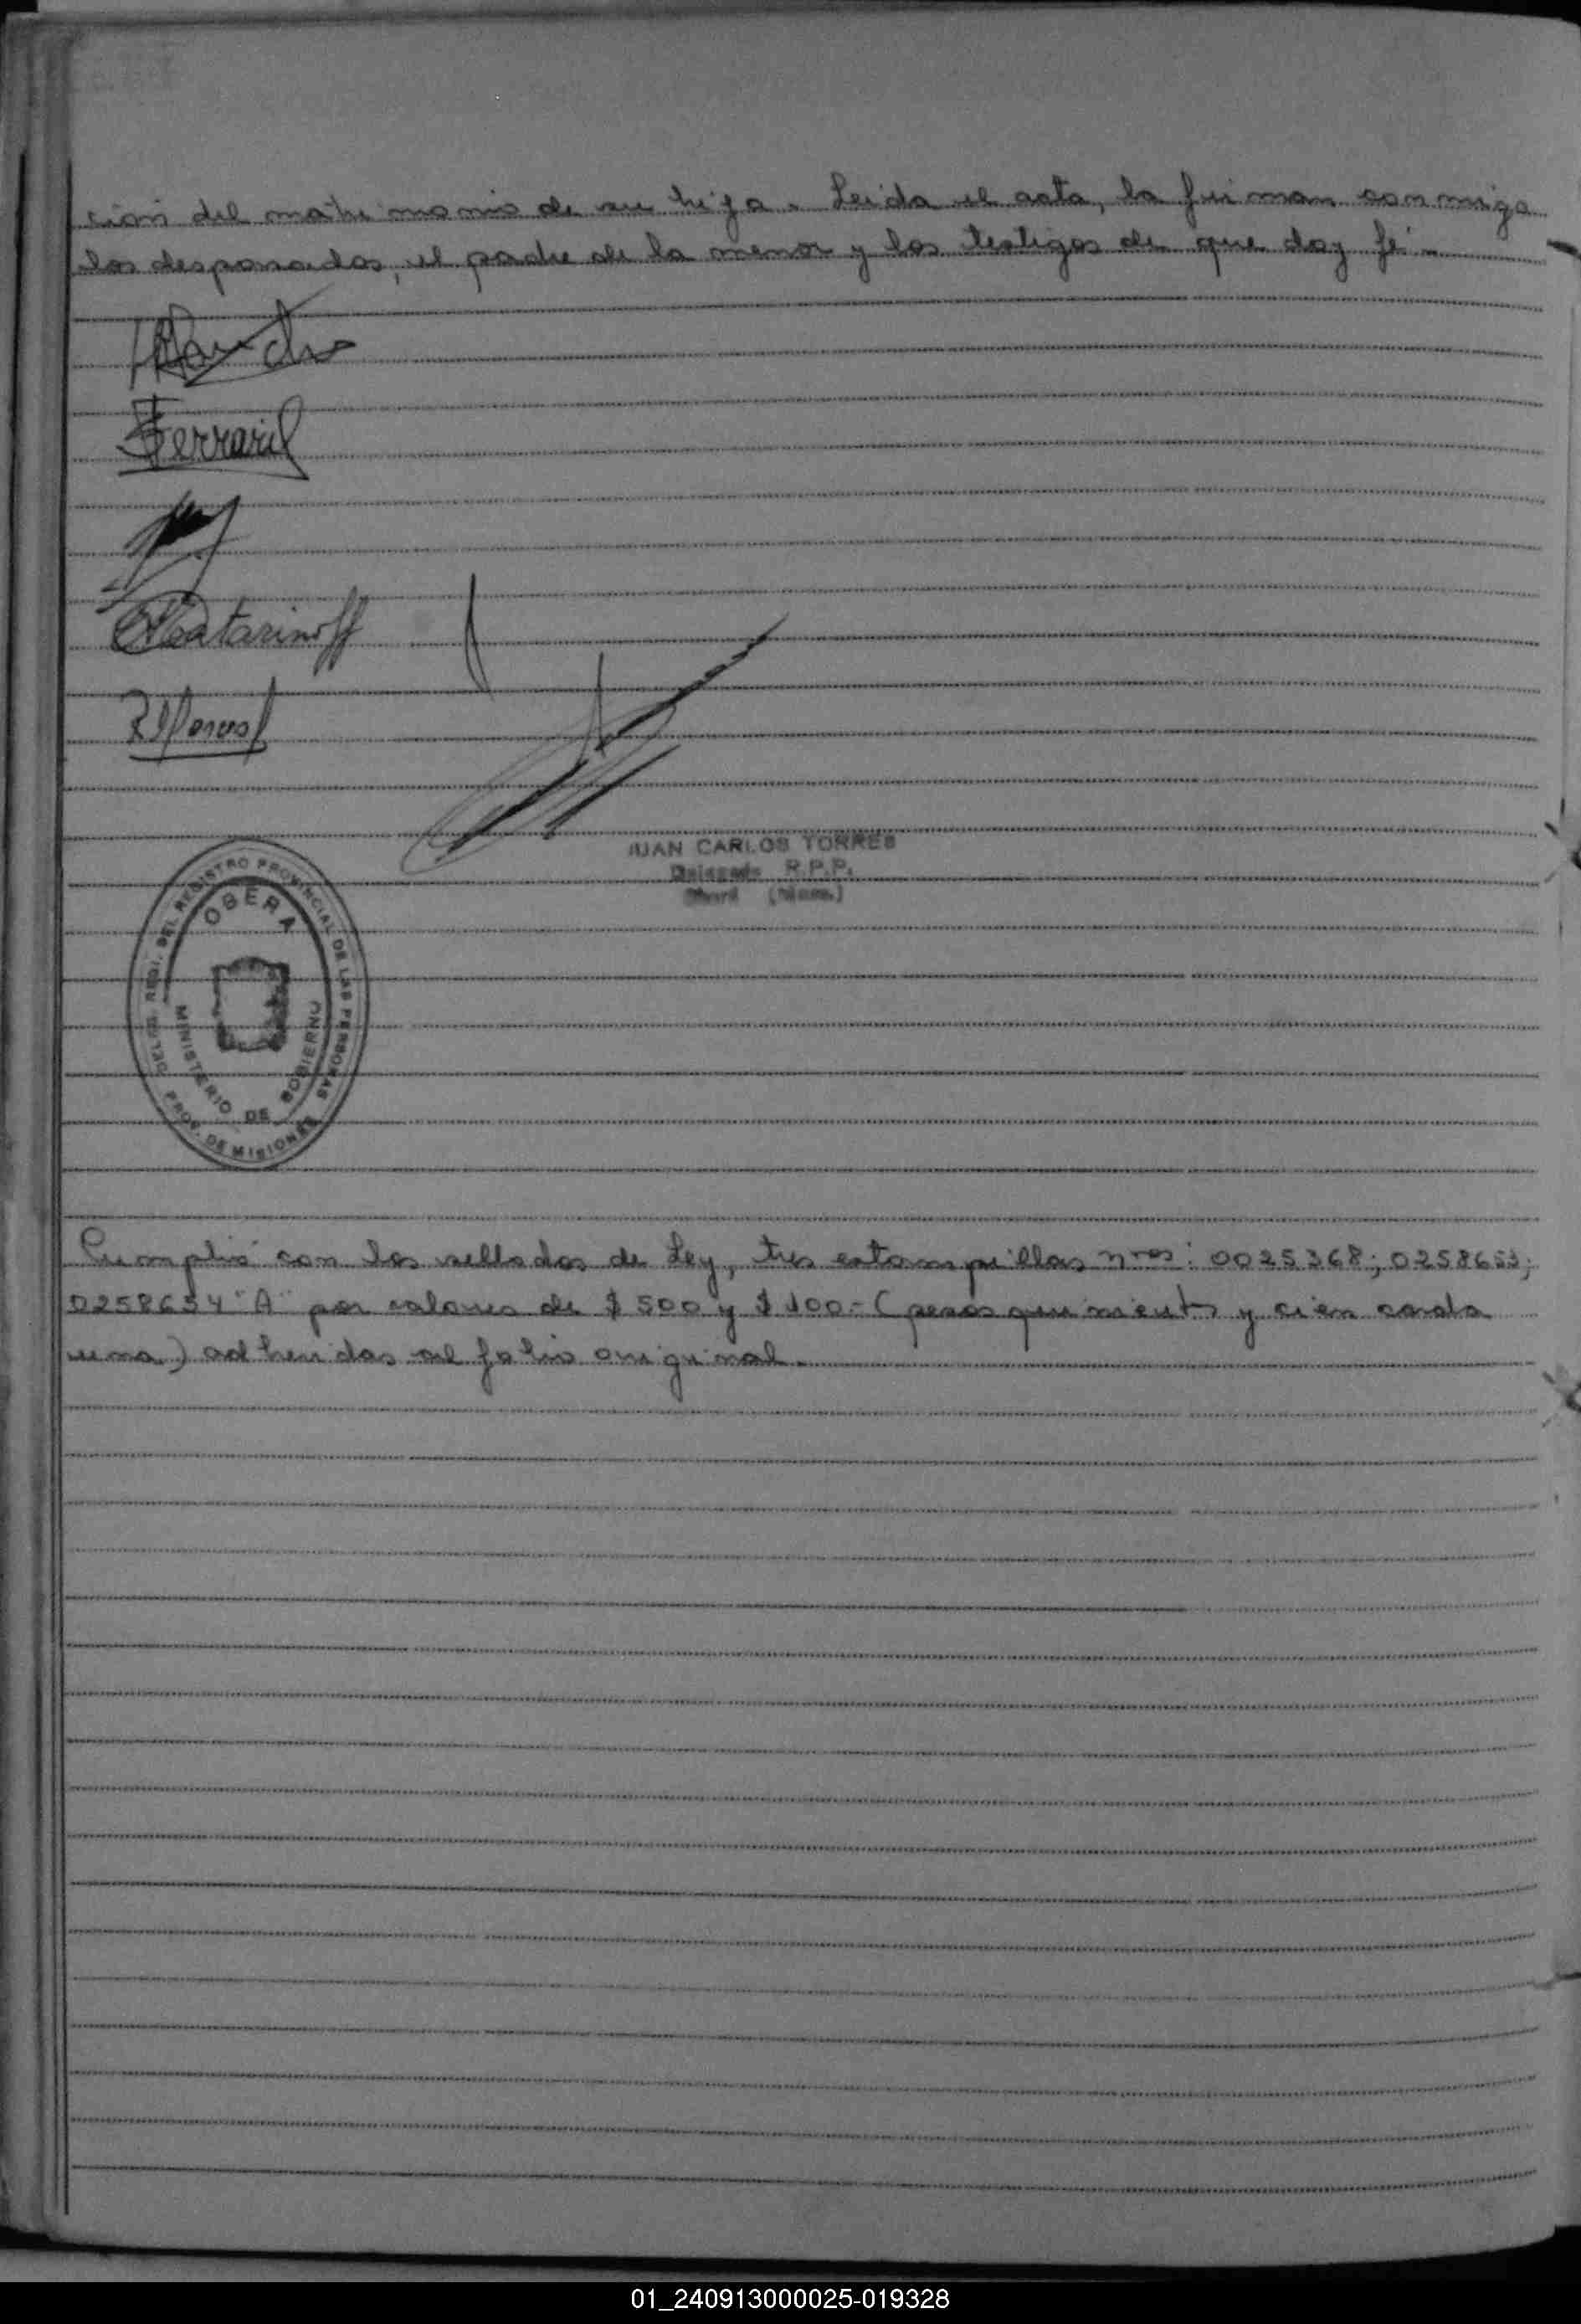 ción del matrimonio de su hija. Leida el acta, la firman conmigo
los desposados, el padre de la menor y los testigos de que doy fé.-
Ferrari
Katarinoff
JUAN CARLOS TORRES
Delegado R.P.P.
Oberá (Mnes.)
DELEG. REGI. DEL REGISTRO PROVINCIAL DE LAS PERSONAS
OBERA
MINISTERIO DE GOBIERNO
PROV. DE MISIONES
Cumplió con los sellados de Ley, tres estampillas nros: 0025368; 0258653;
0258654 "A" por valores de $ 500 y $ 100.- (pesos quinientos y cien cada
una) adheridas al folio original.
01_240913000025-019328